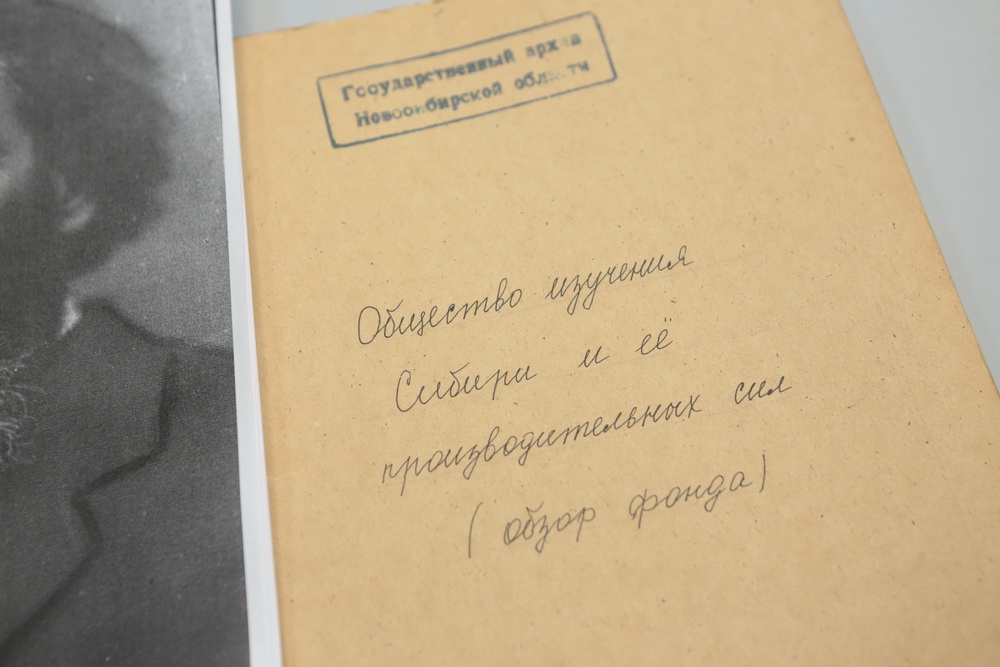 Государственный архив
Новосибирской области
Общество изучения
Сибири и её
производительных сил
(обзор фонда)